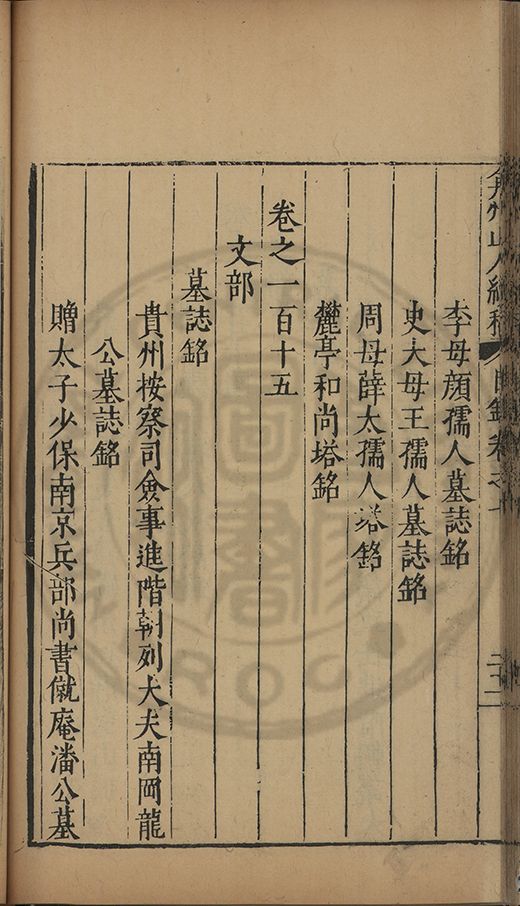 弇州山人續稿 目錄卷之十 二十二
李母顏孺人墓誌銘
史大母王孺人墓誌銘
周母薛太孺人塔銘
麓亭和尚塔銘
卷之一百十五
文部
墓誌銘
貴州按察司僉事進階朝列大夫南岡龍
公墓誌銘
贈太子少保南京兵部尚書僦庵潘公墓